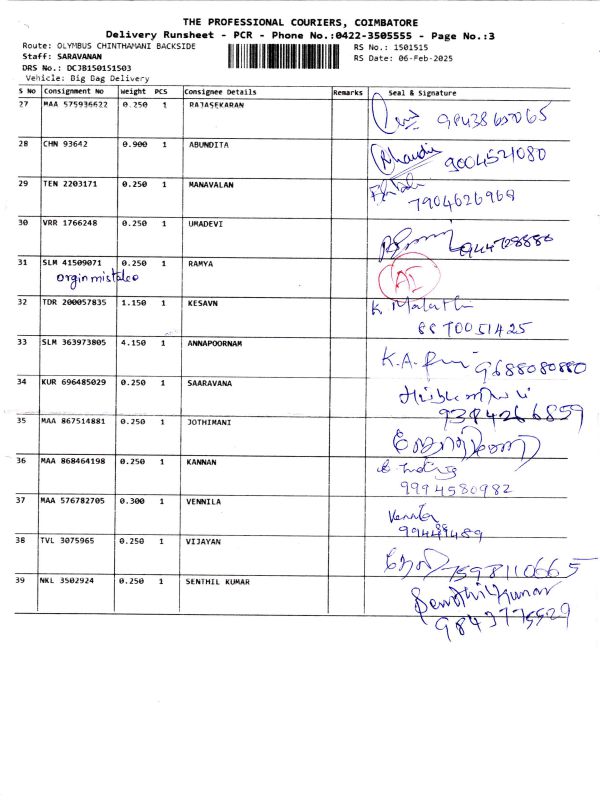 THE PROFESSIONAL COURIERS, COIMBATORE
Delivery Runsheet - PCR - Phone No.:0422-3505555 - Page No.:3
Route: OLYMBUS CHINTHAMANI BACKSIDE RS No.: 1501515
Staff: SARAVANAN RS Date: 06-Feb-2025
DRS No.: DCJB150151503
Vehicle: Big Bag Delivery
S No Consignment No Weight PCS Consignee Details Remarks Seal & Signature
27 MAA 575936622 0.250 1 RAJASEKARAN
28 CHN 93642 0.900 1 ABUNDITA
9004521080
29 TEN 2203171 0.250 1 MANAVALAN
7904626968
30 VRR 1766248 0.250 1 UMADEVI
31 SLM 41509071 0.250 1 RAMYA AI
orgin mistake
32 TDR 200057835 1.150 1 KESAVN K. Malathi
8870051425
33 SLM 363973805 4.150 1 ANNAPOORNAM K.A.
9688080880
34 KUR 696485029 0.250 1 SAARAVANA
9384266859
35 MAA 867514881 0.250 1 JOTHIMANI
36 MAA 868464198 0.250 1 KANNAN
9994580982
37 MAA 576782705 0.300 1 VENNILA Vennila
38 TVL 3075965 0.250 1 VIJAYAN
7598110665
39 NKL 3502924 0.250 1 SENTHIL KUMAR Senthilkumar
9843775529